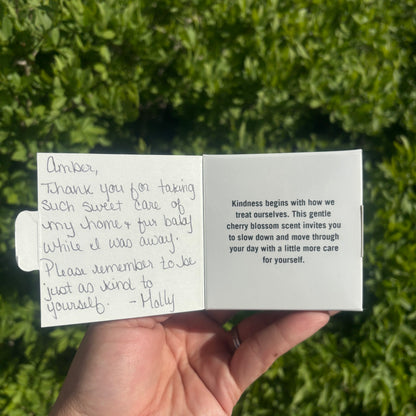 Amber,
Thank you for taking
such sweet care of
my home + fur baby
while I was away.
Please remember to be
just as kind to
yourself. - Molly
Kindness begins with how we
treat ourselves. This gentle
cherry blossom scent invites you
to slow down and move through
your day with a little more care
for yourself.